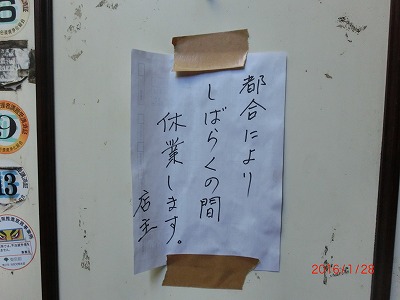 都合により
しばらくの間
休業します。
店主
2016/1/28
9
13